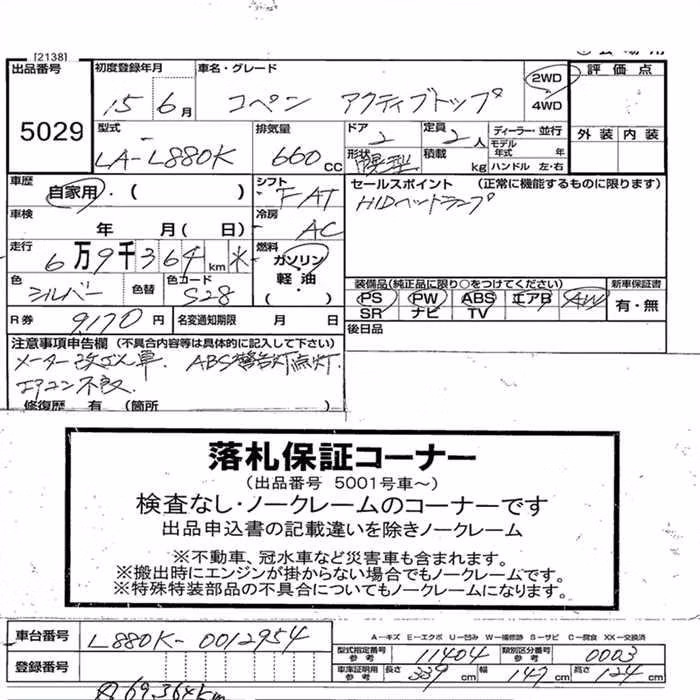 [2138]
出品番号 5029
初度登録年月 15 6月
車名・グレード コペン アクティブトップ
2WD
4WD
評価点
外装 内装
型式 LA-L880K
排気量 660 CC
ドア 2
定員 2人
ディーラー・並行
モデル年式 年
形状
積載 kg
ハンドル 左・右
車歴 自家用・( )
シフト FAT
セールスポイント (正常に機能するものに限ります)
HIDヘットランプ
車検 年 月(日)
冷房 AC
走行 6万9千364km
燃料 ガソリン
軽油・
( )
色 シルバー 色替 色コード S28
装備品(純正品に限り○をつけてください)
PS PW ABS エアB AW
SR ナビ TV
新車保証書
有・無
R券 9,170円 名変通知期限 月 日
後日品
注意事項申告欄(不具合内容等は具体的に記入して下さい)
メーター改ざん車. ABS警告灯点灯.
エアコン不良.
修復歴 有 (箇所
落札保証コーナー
(出品番号 5001号車~)
検査なし・ノークレームのコーナーです
出品申込書の記載違いを除きノークレーム
※不動車、冠水車など災害車も含まれます。
※搬出時にエンジンが掛からない場合でもノークレームです。
※特殊特装部品の不具合についてもノークレームになります。
車台番号 L880K-0012954
A-キズ E-エクボ U-凹み W-補修跡 S-サビ C-腐食 XX-交換済
型式指定番号参考 11404 類別区分番号参考 0003
登録番号
車庫証明用参考 長さ 339cm 幅 147cm 高さ 124cm
69,364km